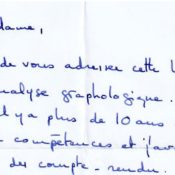 dame,
de vous adresser cette l
nalyse graphologique.
l y a plus de 10 ans
compétences et j'av
des compte-rendu.